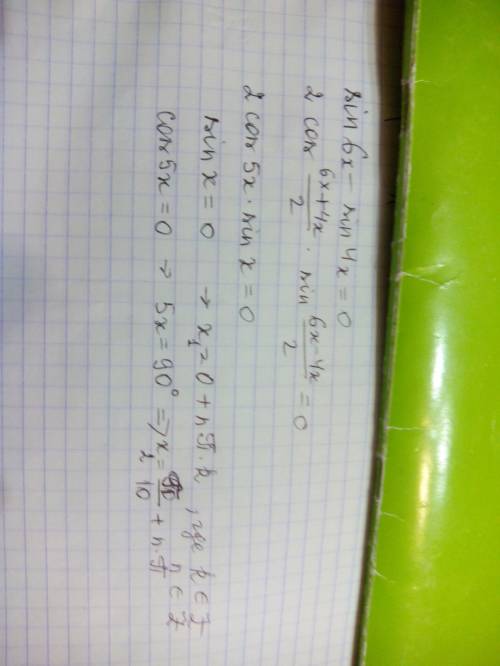 sin 6x - sin 4x = 0
2 cos (6x+4x)/2 · sin (6x-4x)/2 = 0
2 cos 5x · sin x = 0
sin x = 0 → x₁ = 0 + nπ·k, где k ∈ Z
cos 5x = 0 → 5x = 90° => x₂ = /10 + n·π n ∈ Z